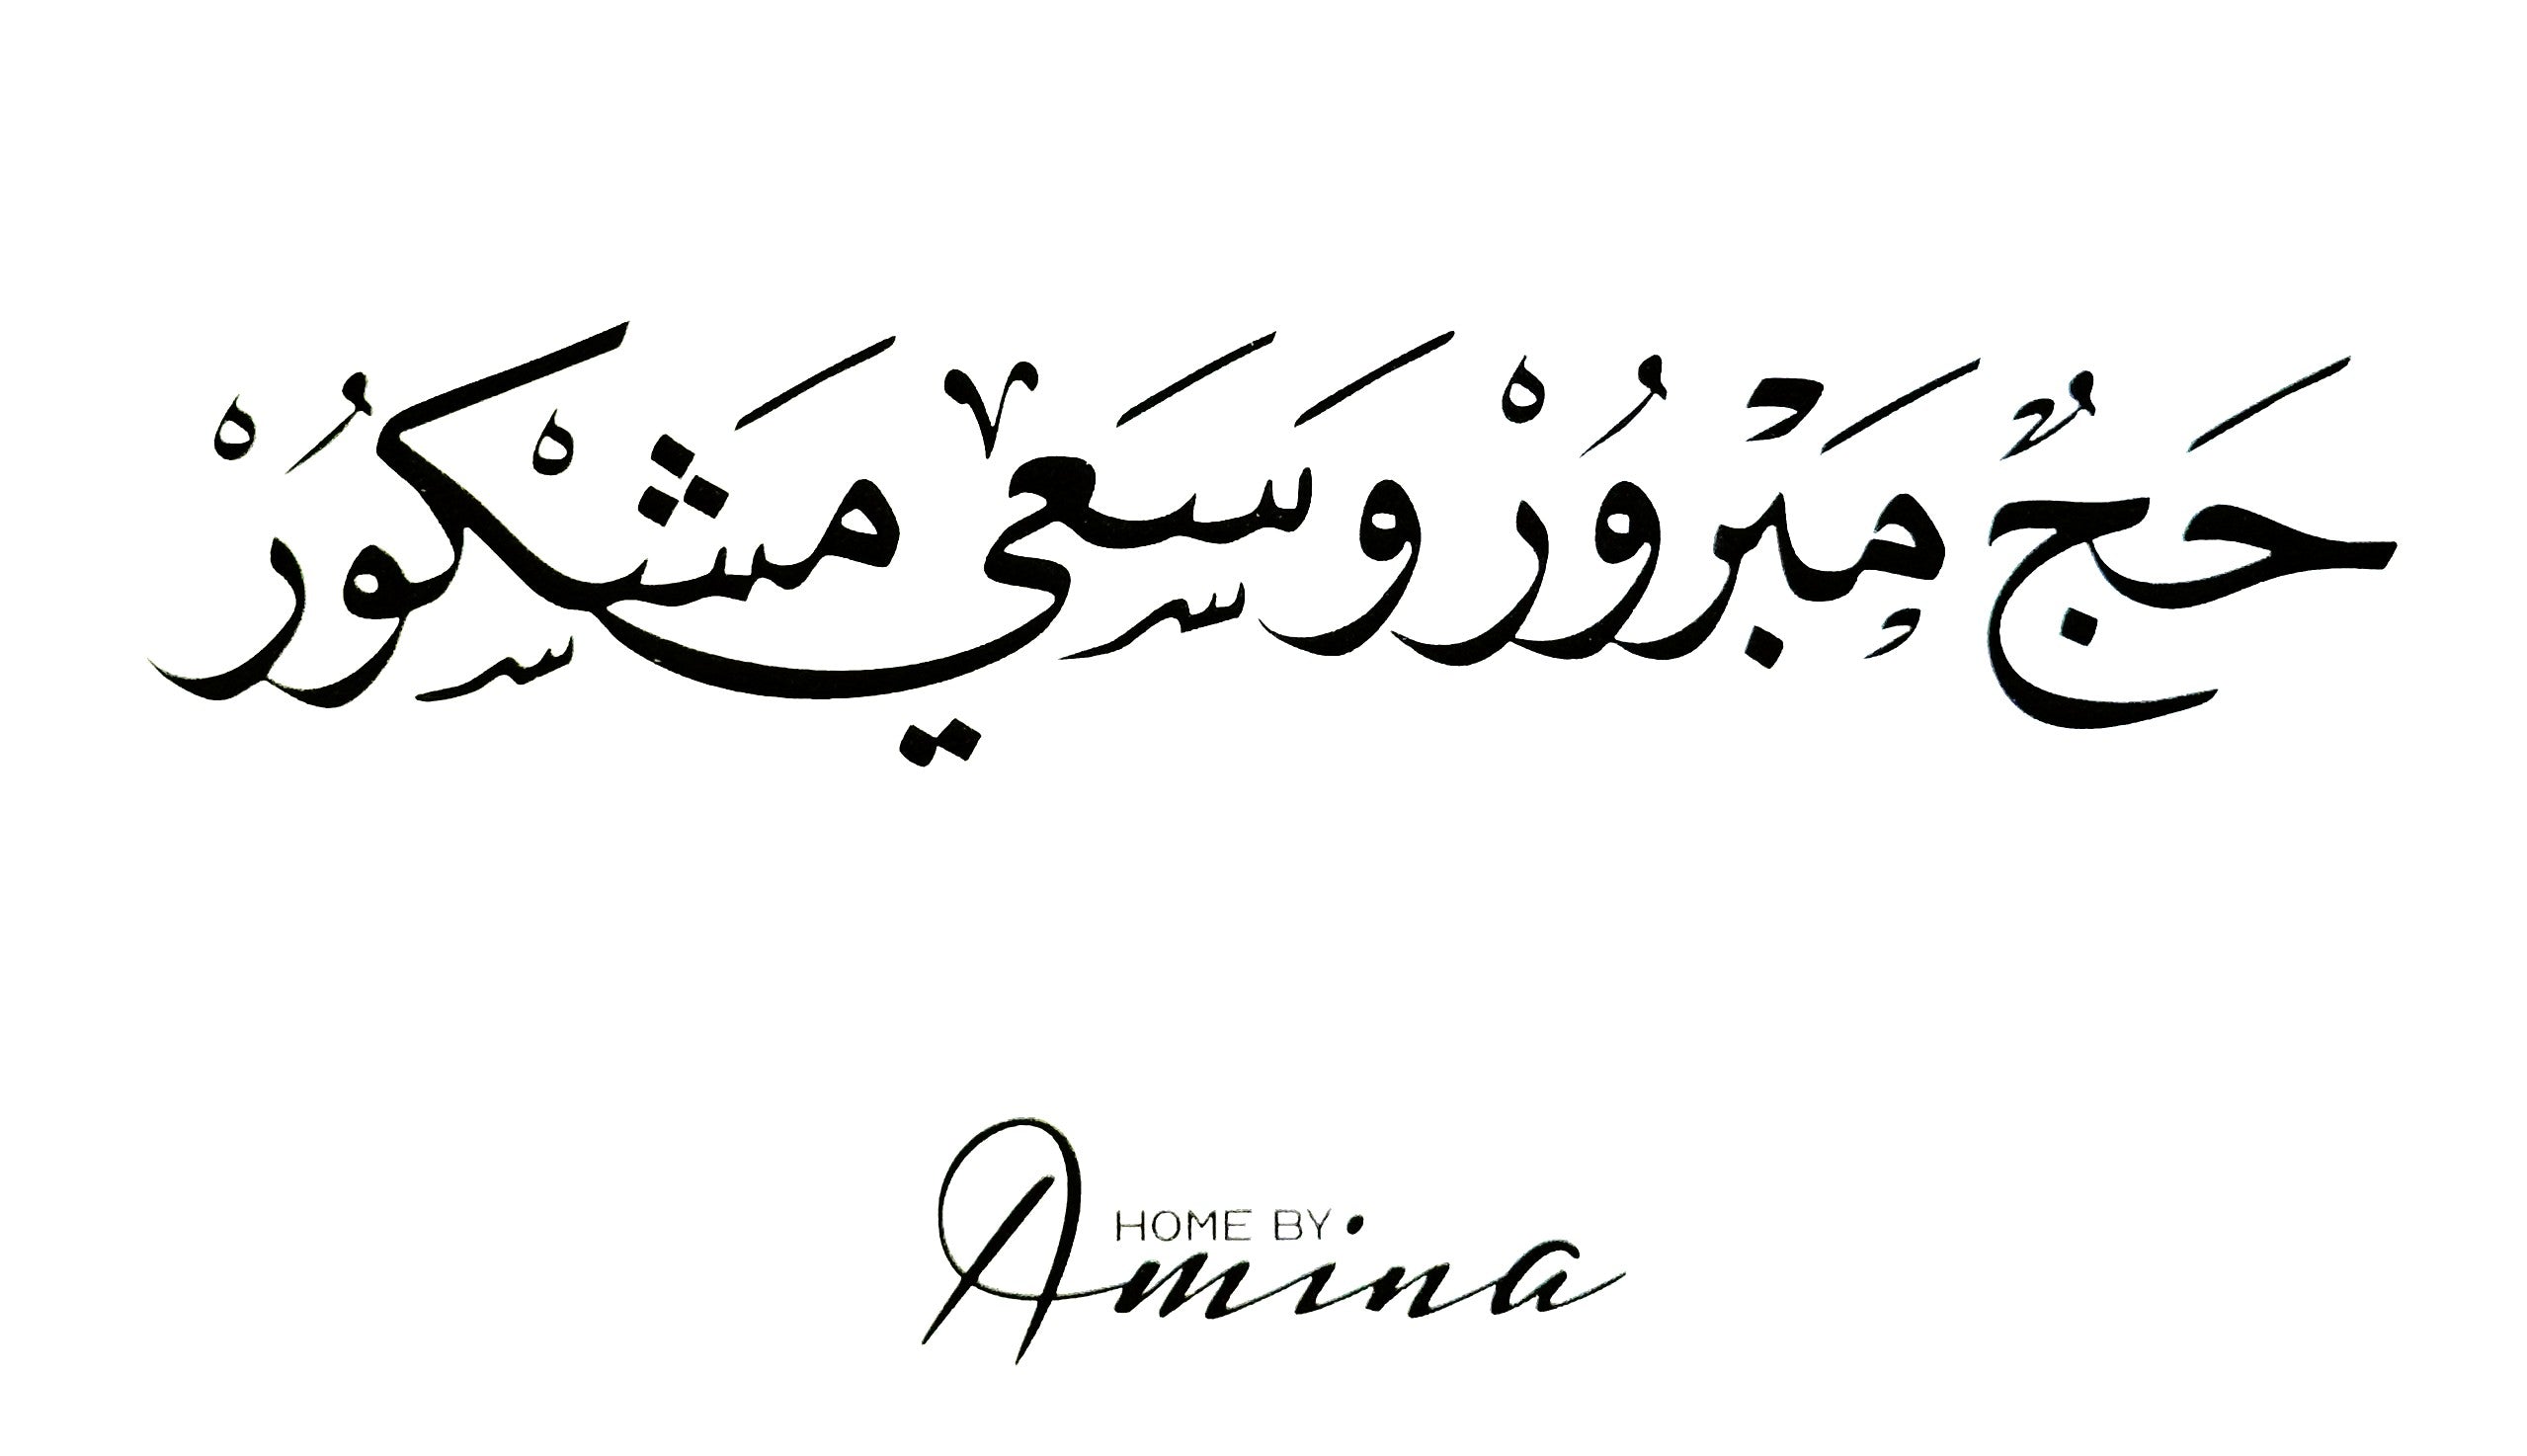 حَجٌ مَبْرُورْ وَسَعي مَشْكُورْ
HOME BY
Amina